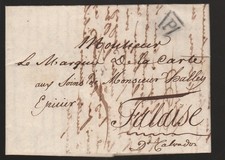 P
Monsieur
Le Marquis De la Carte
aux Soins de Monsieur
Epicier
Falaise
Calvados